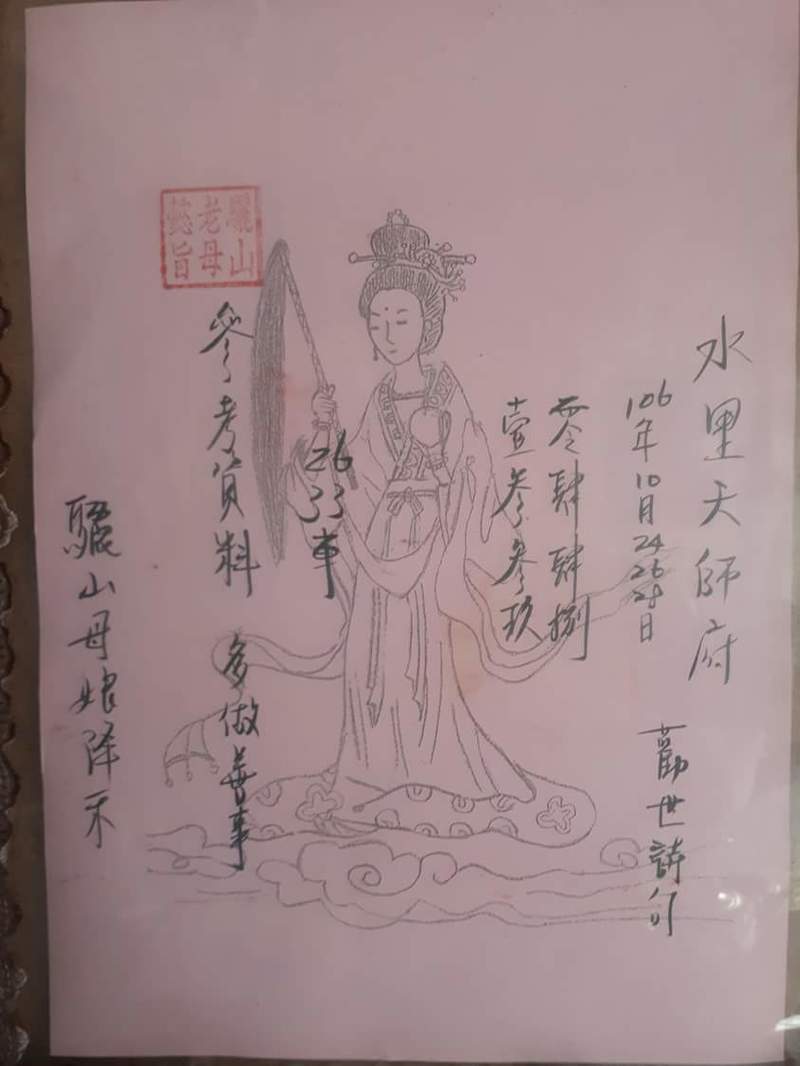 水里天師府
106年10月24 26 28日
勸世詩句
零肆肆捌
壹參參玖
26
33車
參考資料 多做善事
驪山老母懿旨
驪山母娘降示